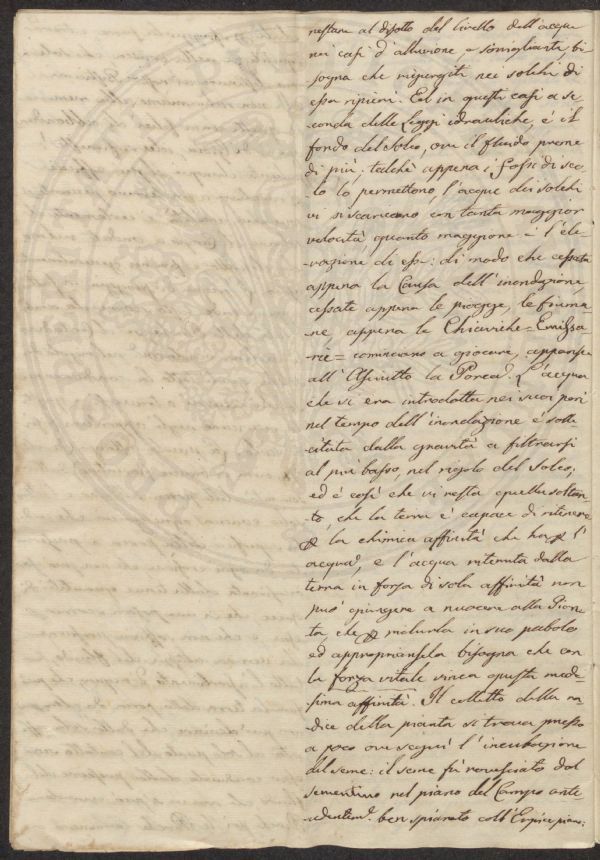 restare al disotto del livello dell'acqua
nei casi d'alluvione, e somiglianti bi
sogna che risorgiti nei solchi di
essa ripieni. Ed in questi casi a se
conda delle Leggi idrauliche, é il
fondo del Solco, ove il fluido preme
di più: talchè appena i Fossi di sco
lo lo permettono, l'acque dei solchi
vi si scaricano con tanta maggior
velocità quanto maggiore è l'ele
vazione di esse: di modo che cessata
appena la Causa dell'inondazione,
cessate appena le piogge, le fiuma
ne, appena le Chiaviche=Emissa
rie= cominciano a giocare, apparisce
all'Asciutto la Porca. L'acqua
che si era introdotta nei suoi pori
nel tempo dell'inondazione é solle
citata dalla gravità a filtrarsi
al più basso, nel rigolo del Solco;
ed é così che vi resta quella soltan
to, che la terra é capace di ritenere
la chimica affinità che ha l'
acqua, e l'acqua ritenuta dalla
terra in forza di sola affinità non
può giungere a nuocere alla Pian
ta, che a in suo pabolo
ed appropriarsela bisogna che con
la forza vitale vinca questa mede
sima affinità. Il colletto della ra
dice della pianta si trova presso
a poco ove seguì l'incubazione
del seme: il seme fù rovesciato dal
sementino nel piano del Campo ante
cedentem. ben spianato coll'Erpice piano: